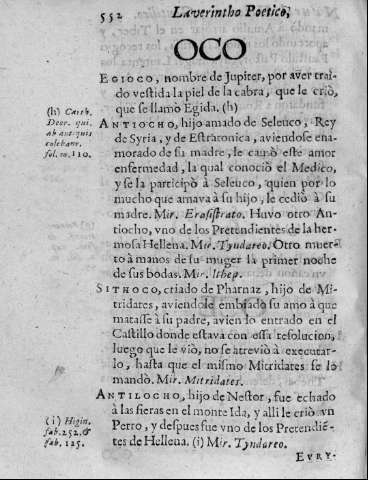 552 Laverintho Poetico,
OCO
EGIOCO, nombre de Jupiter, por aver trai-
do vestida la piel de la cabra, que le criò,
que se llamò Egida. (h)
(h) Carth.
Deor. qui.
ab antiquis
colebant.
fol. m. 110.
ANTIOCHO, hijo amado de Seleuco, Rey
de Syria, y de Estratonica, aviendose ena-
morado de su madre, le causò este amor
enfermedad, la qual conociò el Medico,
y se la participò à Seleuco, quien por lo
mucho que amava à su hijo, le cediò à su
madre. Mir. Erasistrato. Huvo otro An-
tiocho, vno de los Pretendientes de la her-
mosa Hellena. Mir. Tyndareo. Otro muer-
to à manos de su muger la primer noche
de sus bodas. Mir. Ithep.
SITHOCO, criado de Pharnaz, hijo de Mi-
tridates, aviendole embiado su amo à que
matasse à su padre, avien lo entrado en el
Castillo donde estava con essa resolucion,
luego que le viò, no se atreviò à executar-
lo, hasta que el mismo Mitridates se lo
mandò. Mir. Mitridates.
ANTILOCHO, hijo de Nestor, fue echado
à las fieras en el monte Ida, y alli le criò vn
Perro, y despues fue vno de los Pretendiẽ-
tes de Hellena. (i) Mir. Tyndareo.
(i) Higin.
fab. 252. &
fab. 125.
EVRY-